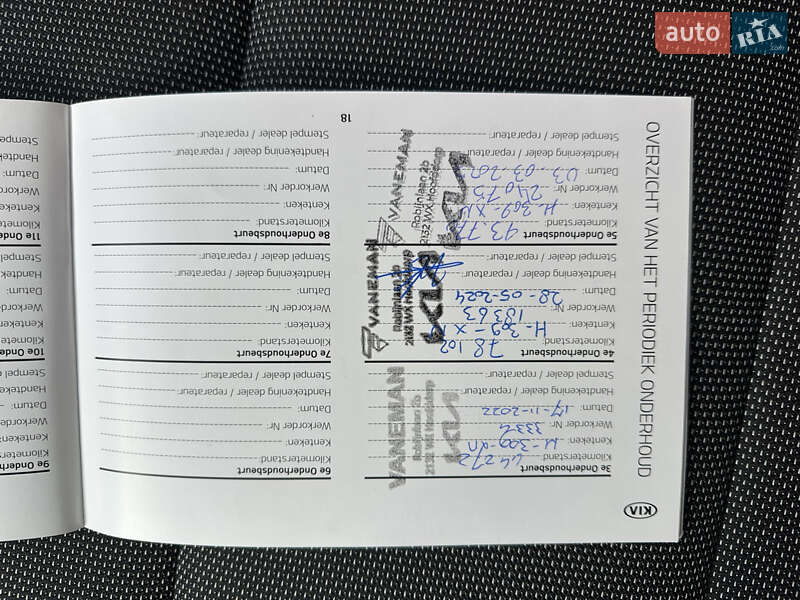 auto RIA
KIA
OVERZICHT VAN HET PERIODIEK ONDERHOUD
3e Onderhoudsbeurt
Kilometerstand: 44272
Kenteken:
Werkorder Nr:
Datum: 17-11-2022
Handtekening dealer / reparateur:
Stempel dealer / reparateur:
VANEMAN
Robijnlaan 2b
2132 WX Hoofddorp
KIA
4e Onderhoudsbeurt
Kilometerstand: 78102
Kenteken: H-309-XN
Werkorder Nr: 18363
Datum: 28-05-2024
Handtekening dealer / reparateur:
Stempel dealer / reparateur:
VANEMAN
Robijnlaan 2b
2132 WX Hoofddorp
KIA
5e Onderhoudsbeurt
Kilometerstand:
Kenteken: H-309-XN
Werkorder Nr: 21075
Datum:
Handtekening dealer / reparateur:
Stempel dealer / reparateur:
VANEMAN
Robijnlaan 2b
2132 WX Hoofddorp
KIA
6e Onderhoudsbeurt
Kilometerstand:
Kenteken:
Werkorder Nr:
Datum:
Handtekening dealer / reparateur:
Stempel dealer / reparateur:
7e Onderhoudsbeurt
Kilometerstand:
Kenteken:
Werkorder Nr:
Datum:
Handtekening dealer / reparateur:
Stempel dealer / reparateur:
8e Onderhoudsbeurt
Kilometerstand:
Kenteken:
Werkorder Nr:
Datum:
Handtekening dealer / reparateur:
Stempel dealer / reparateur:
18
9e
Kilometerstand
Kenteken:
Werkorder
Datum:
Handtekening
Stempel
10e
Kilometerstand
Kenteken
Werkorder
Datum:
Handtekening
Stempel
11e
Kilometerstand
Kenteken
Werkorder
Datum:
Handtekening
Stempel